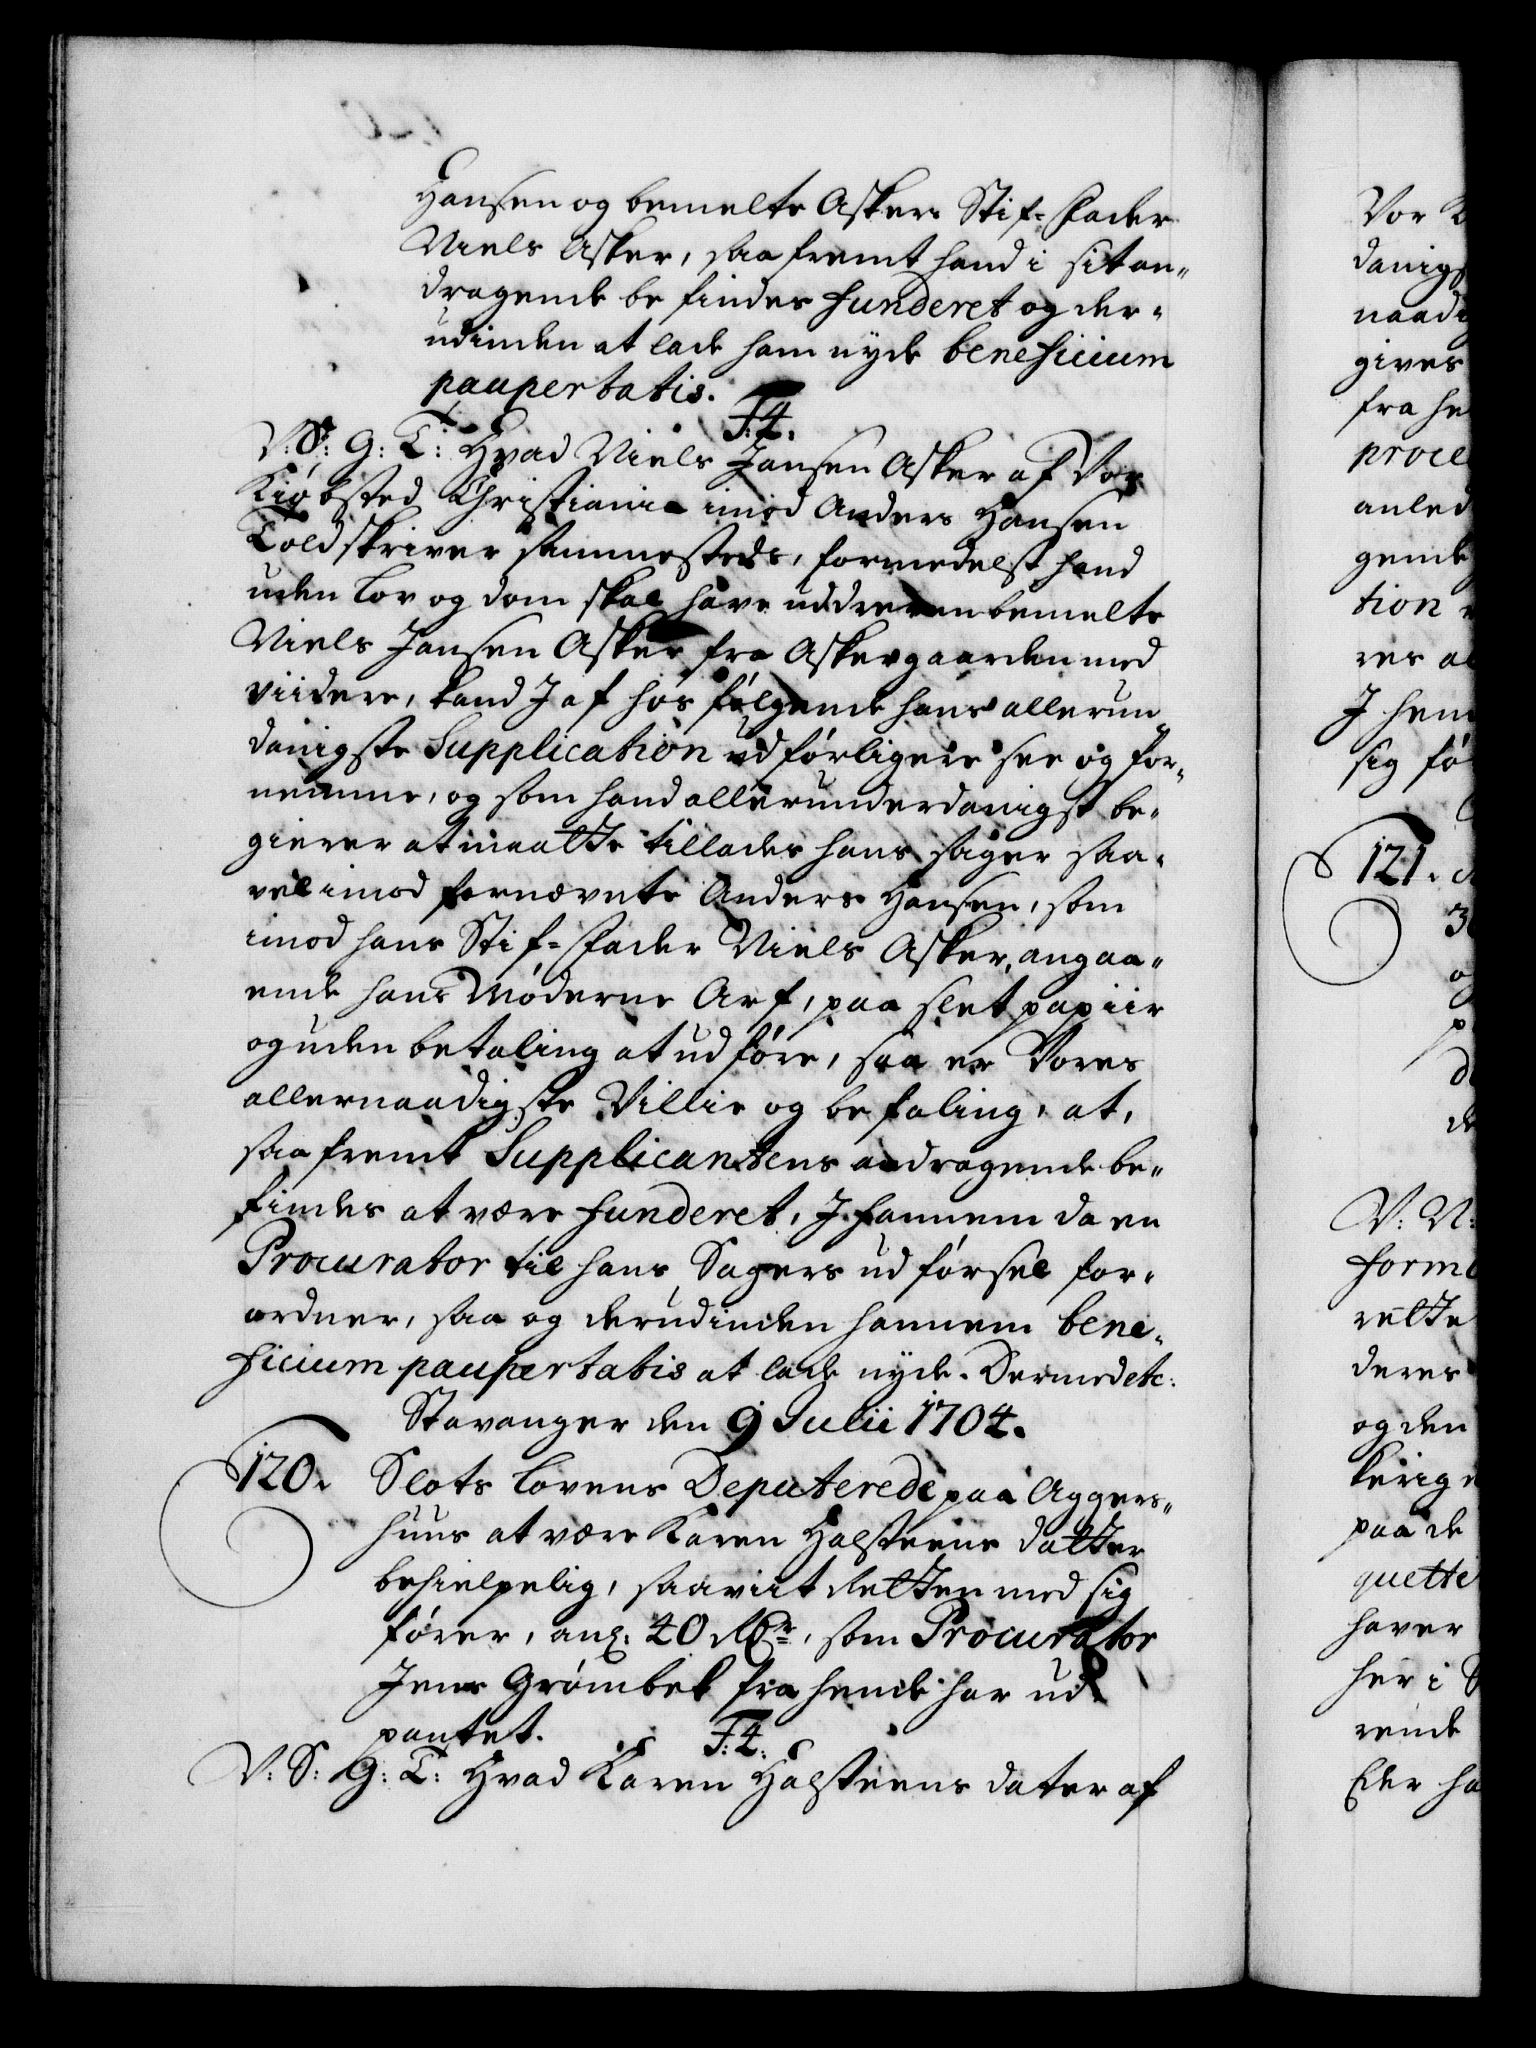 Hansen og bemelte Askers Stif-Fader
Niels Asker, saafremt hand i sit an-
dragende befindes funderet og der-
udinden at lade ham nyde beneficium
paupertatis.
F:4.
V:S: G: T: Hvad Niels Jansen Asker af Vor
Kiøbsted Christiania imod Anders Hansen
Toldskriver sammesteds, formedelst hand
uden Lov og dom skal have uddreven bemelte
Niels Jansen Asker fra Askergaarden med
viidere, kand J af hosfølgende hans allerun-
danigste Supplication udførligere see og for-
nemme, og som hand allerunderdanigst be-
gierer at maatte tillades hans sager saa-
vel imod fornævnte Anders Hansen, som
imod hans Stif-Fader Niels Asker, angaa-
ende hans Møderne Arf, paa slet papiir
og uden betaling at udføre, saa er Vores
allernaadigste Villie og befaling, at,
saafremt Supplicantens andragende be-
findes at være funderet, J hannem da en
Procurator til hans Sagers udførsel for-
ordner, saa og derudinden hannem bene-
ficium paupertatis at lade nyde. Dermed etc:
Stavanger den 9 Julii 1704.
120. Slots Lovens Deputerede paa Aggers-
huus at være Karen Halsteens datter
behielpelig, saaviit Retten med sig
fører, ang. 40 Rdr, som Procurator
Jens Grømbek fra hende har ud-
pantet.
F:4.
V: S: G: T: Hvad Karen Halsteens dater af
Vor K
danigs
naadi
gives
fra he
proce
anled
gende
tion
res al
J hem
sig fø
121.
3
og
p
d
de
V: N:
forme
rette
deres
og den
kerig
paa de
quette
haver
her i S
rende
Eder ha